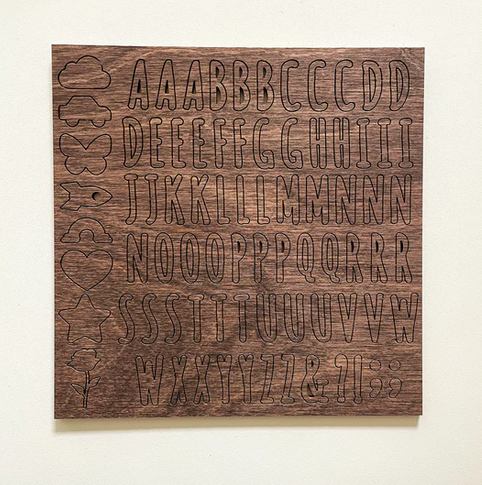 AAABBBCCCCDD
DEEEFFGGHHIII
JJKKLLLMMNNN
NOOOPPPQQRRR
SSSTTTUUUVVW
WXXYYZZ&?!;;